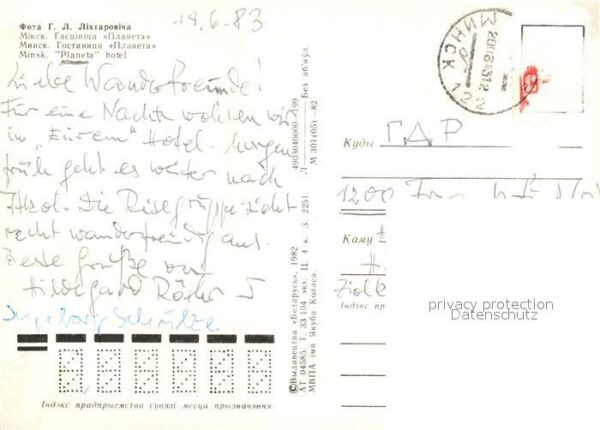 19.6.83
Фота Г. Л. Ліхтаровіча
Мінск. Гасцініца «Планета»
Минск. Гостиница «Планета»
Minsk. "Planeta" hotel
Liebe Wanderfreunde!
Für eine Nacht wohnen wir
in "Eurem" Hotel. Morgen
früh geht es weiter nach
Die Reisegruppe sieht
recht wanderfreudig aus.
Beste Grüße von
Hildegard
Ingeborg Schültze
Індэкс прадпрыемства сувязі месца прызначэння
© Выдавецтва «Беларусь», 1982
АТ 04585. Т. 33 104 экз. Ц. 4 к. З. 2251.
МВПА імя Якуба Коласа.
4903040000—199
Л Без аб'яўл.
М 301(05)—82
МИНСК
Куды ГДР
1200
Каму
Індэкс пр
privacy protection
Datenschutz